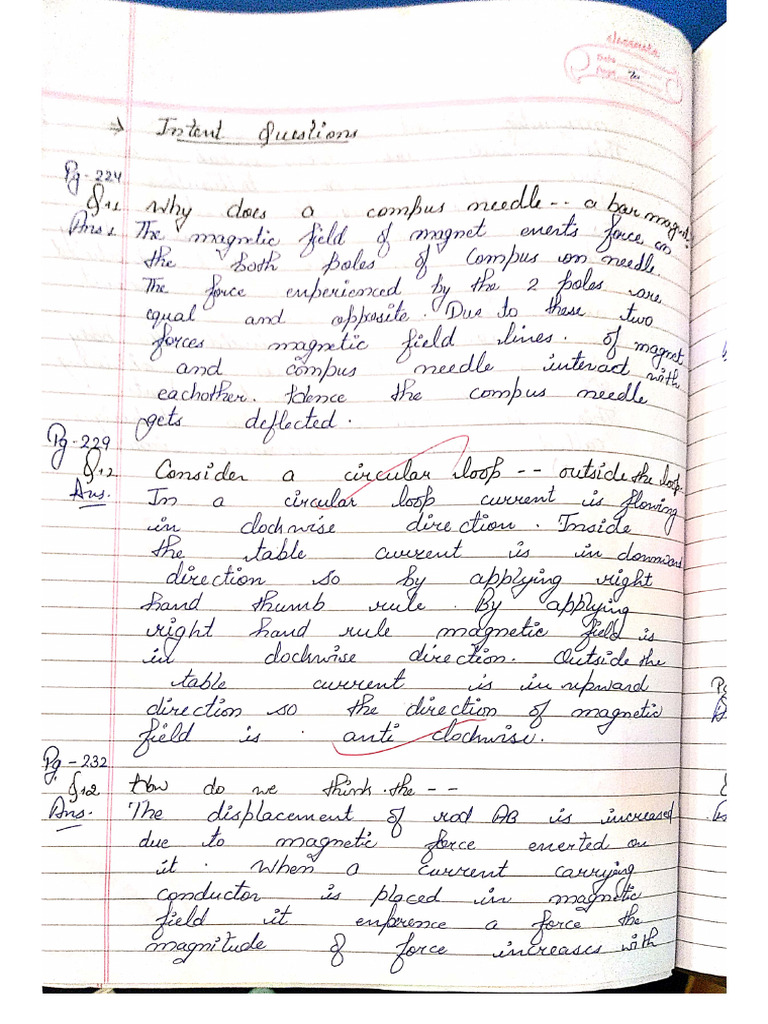 classmate
Date
Page
⇒ Intent Questions
Pg-224
Q.1 Why does a compus needle -- a bar magnet.
Ans. The magnetic field of magnet exerts force on
the both poles of compus on needle.
The force experienced by the 2 poles are
equal and opposite. Due to these two
forces magnetic field lines. of magnet
and compus needle interact with
eachother. Hence the compus needle
gets deflected.
Pg-229
Q.2 Consider a circular loop -- outside the loop.
Ans. In a circular loop current is flowing
in clockwise direction. Inside
the table current is in downward
direction so by applying right
hand thumb rule. By applying
right hand rule magnetic field is
in clockwise direction. Outside the
table current is in upward
direction so the direction of magnetic
field is. anti clockwise.
Pg-232
Q.2 How do we think the --
Ans. The displacement of rod AB is increased
due to magnetic force exerted on
it. When a current carrying
conductor is placed in magnetic
field it experence a force the
magnitude of force increases with